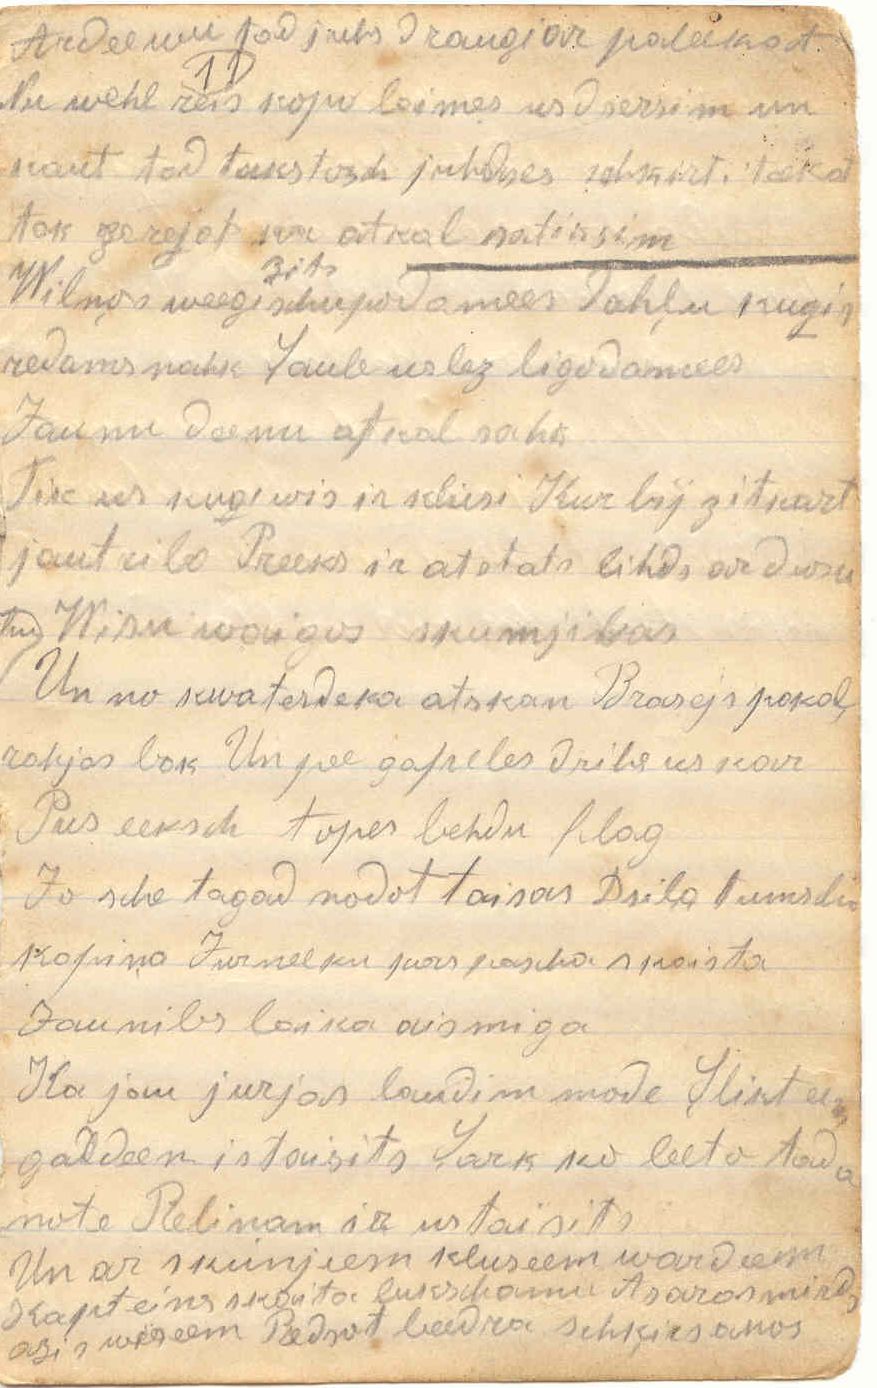 Ardeewu jod juhs draugi ar paleekat
11
Nu wehl reis kopu laimes usdsersim un
kaut tad tukstosch juhdses schkirt. taka
tak zerejot ka atkal satiksim
zits
Wilnos weegi schupodamees Dahlu kugis
redams nahk Saule uslez ligodamees
Jaunu deenu atkal sahk
Tik us kugi wis ir klusi Kur bij zitkart
jautriba Preeks ir atstats lihds ar dusu
Wisu waigos skumjibas
Un no kwaterdeka atskan Brasejs pakal
rahjas bak Un pee gafeles drihs uskar
Pus eeksch topes behdu flag
Jo sche tagad nodot taisas Dsila tumscha
kapina Jurneeku kas pascha skaista
Jaunibs laika aismiga
Ka jau jurjas laudim mode Slikt
galdeem istaisits Sark ko leeto tad
note Relinam ir ustaisits
Un ar skunjeem kluseem wardeem
Kapteins skaita luhschanu Asaras mirds
azis wiseem Redsot beedra schkirsanos